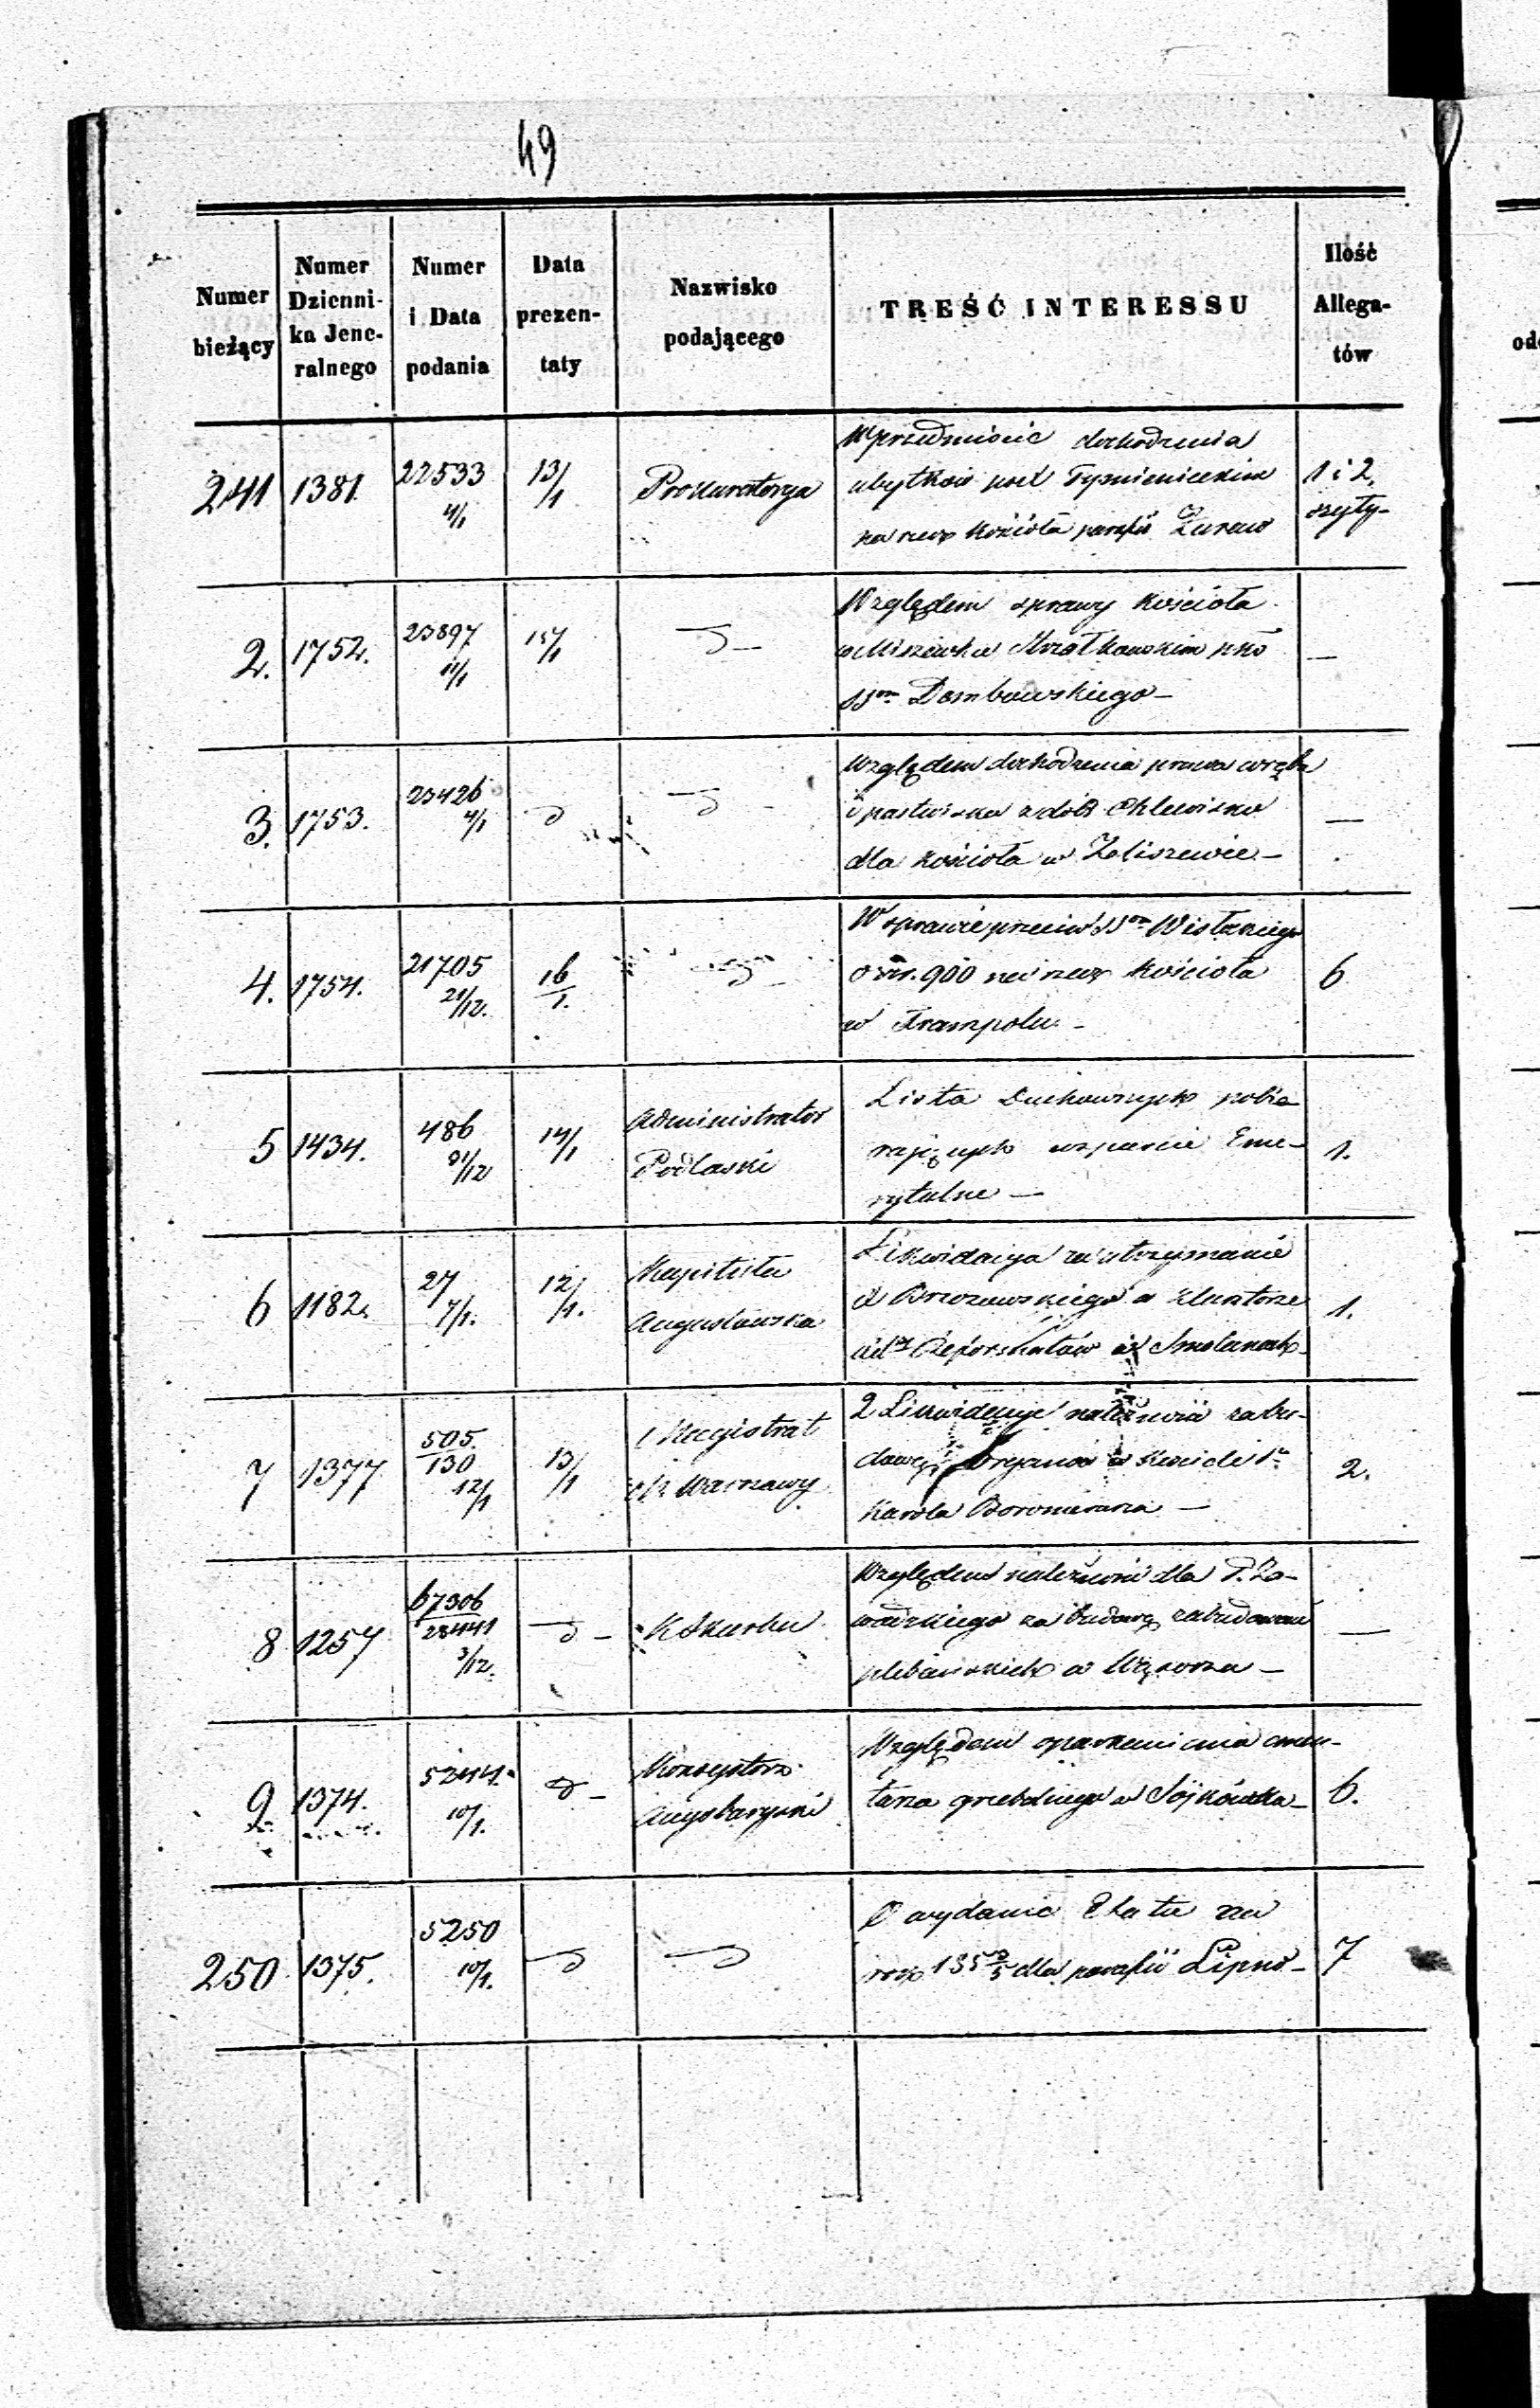 49
Numer bieżący
Numer Dzienni-ka Jene-ralnego
Numer i Data podania
Data prezen-taty
Nazwisko podającego
TREŚĆ INTERESSU
Ilość Allega-tów
241 1381 22533 4/1 13/1 Prokuratorya
W przedmiocie dochodzenia
ubytków
na rzecz Kościoła parafii Żuraw
1 i 2
szyty-
2. 1752. 23897 11/1 15/1 D-
Względem sprawy Kościoła
Dombowskiego-
—
3. 1753. 23426 4/1 D D-
Względem dochodzenia prawa wrębu
i pastwiska z dóbr Chlewiska
dla kościoła w Żeliszewie-
—
4. 1754. 21705 21/12. 16/1. D-
W sprawie przeciw
900 na rzecz Kościoła
w Frampolu-
6
5 1434. 486 31/12 14/1 Administrator
Podlaski
Lista Duchownych pobie
rających wsparcie Eme-
rytalne —
1.
6 1182. 27 7/1. 12/1. Kapituła
Augustowska
Likwidacya za utrzymanie
X Brzozowskiego w Klasztorze
Reformatów w Smolanach-
1.
7 1377 505/130 12/1 13/1 Magistrat
Warszawy
2 Likwidacye należności za bu-
dowę Organów w Kościele
Karola Boromeusza —
2.
8 1257 67306/23441 3/12. D- K Skarbu
Względem należności dla P. Za-
wadzkiego za budowę zabudowań
plebańskich w Wąsosza-
—
9. 1374. 5244. 10/1. D- Konsystorz
Względem oparkanienia cmen-
tarza grzebalnego w
6.
250 1375. 5250 10/1. D D
O wydanie Etatu na
dla parafii Lipno-
7